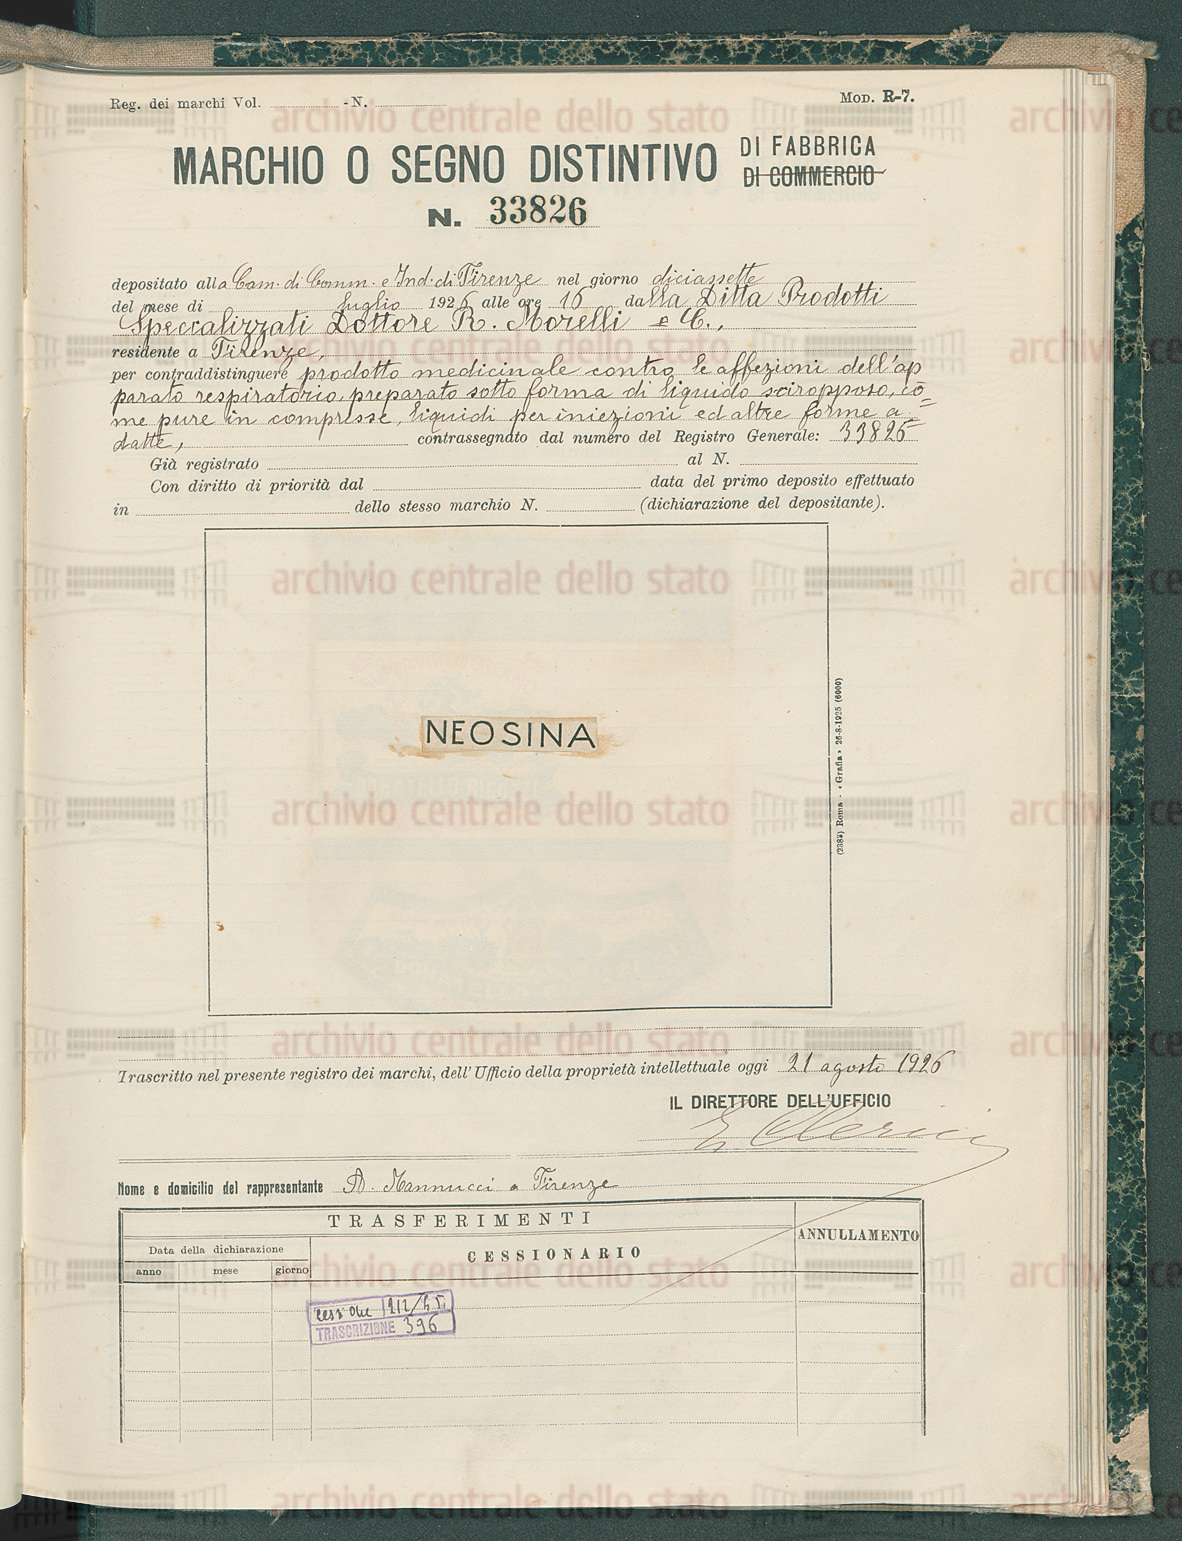 Reg. dei marchi Vol. - N. Mod. R-7.
MARCHIO O SEGNO DISTINTIVO DI FABBRICA
DI COMMERCIO
N. 33826
depositato alla Cam. di Comm. e Ind. di Firenze nel giorno diciassette
del mese di luglio 1926 alle ore 16 dalla Ditta Prodotti
Speccalizzati Dottore R. Morelli e C.,
residente a Firenze,
per contraddistinguere prodotto medicinale contro le affezioni dell'ap
parato respiratorio, preparato sotto forma di liquido sciropposo, co=
me pure in compresse, liquidi per iniezioni ed altre forme a
datte, contrassegnato dal numero del Registro Generale: 33825
Già registrato al N.
Con diritto di priorità dal data del primo deposito effettuato
in dello stesso marchio N. (dichiarazione del depositante).
NEOSINA
(2382) Roma - «Grafia» 26-8-1925 (6000)
Trascritto nel presente registro dei marchi, dell'Ufficio della proprietà intellettuale oggi 21 agosto 1926
IL DIRETTORE DELL'UFFICIO
Nome e domicilio del rappresentante A. Mannucci a Firenze
TRASFERIMENTI
ANNULLAMENTO
Data della dichiarazione
CESSIONARIO
anno mese giorno
TRASCRIZIONE 396
archivio centrale dello stato